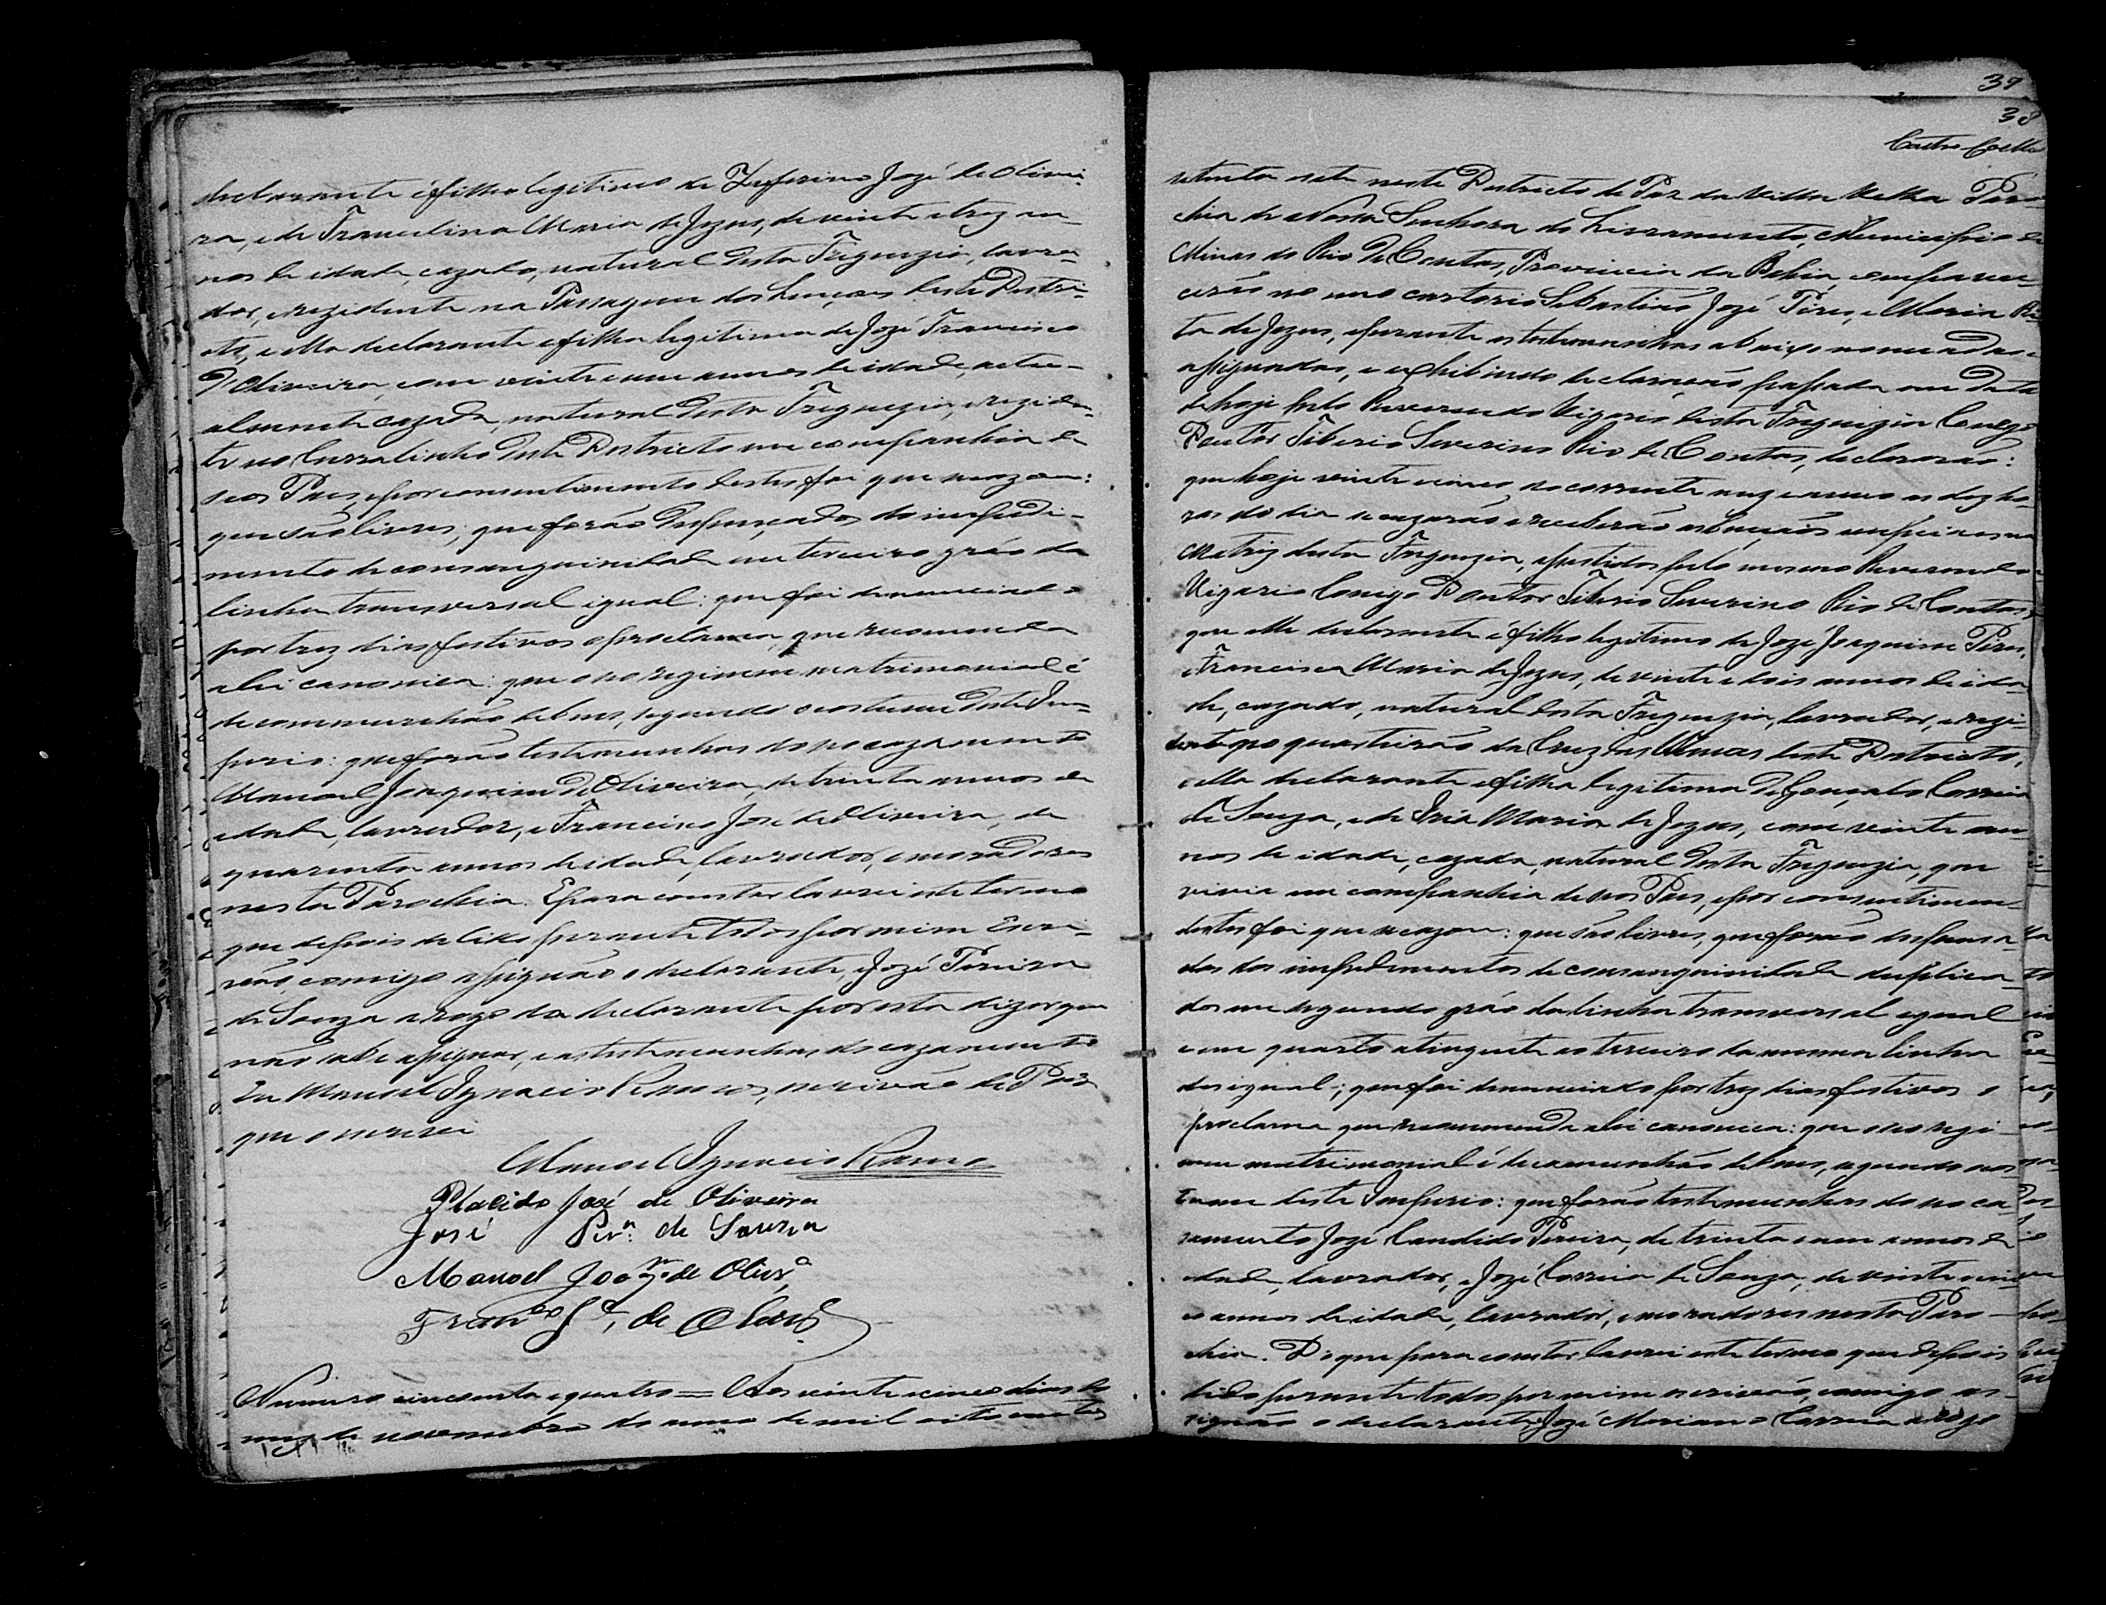 declarante é filho legitimo de Zeferino José de Olivei-
ra, e de Francelina Maria de Jezus, de vinte e trez an-
nos de idade, cazado, natural desta Freguezia, lavra-
dor, e rezidente na Passagem dos deste Distri-
cto, e ella declarante é filha legitima de Jozé Francisco
d'Oliveira, com vinte e um annos de idade actu-
almente cazada, natural desta Freguezia, e reziden-
te no Curralinho deste Districto em companhia de
seos Pais, e por consentimento destes foi que se cazou:
que são livres; que forão dispençados do impedi-
mento de consanguinidade em terceiro gráo da
linha transversal igual: que foi denunciado
por trez dias festivos o proclama, que recommenda
a lei canonica: que o seo regimem matrimonial é
de communhão de bens, segundo o costume deste Im-
perio: que forão testemunhas do seo cazamento
Manoel Joaquim de Oliveira, de trinta annos de
idade, lavrador, e Francisco José de Oliveira, de
quarenta annos de idade, lavrador, e moradores
nesta Parochia. E para constar lavrei este termo
que depois de lido perante todos por mim Escri-
vão comigo assignão o declarante, e Jozé Pereira
de Souza a rogo da declarante por esta dizer que
não sabe assignar, e as testemunhas do cazamento
Eu Manoel Ignacio Ramos, escrivão de Paz
que o escrevi
Manoel Ignacio Ramos
Placido José de Oliveira
José Pera. de Souza
Manoel Joaqm. de Olivra.
Franco. Je. de Olivra.
Numero cincoenta e quatro = Aos vinte e cinco dias do
mez de novembro do anno de mil oito centos
39
38
Castro Coelho
setenta e sete neste Districto de Paz da Villa Velha Paro-
chia de Nossa Senhora do Livramento, Municipio de
Minas do Rio de Contas, Provincia da Bahia, compare-
cerão no meo cartorio Sebastião Jozé Pires, e Maria Ri-
ta de Jezus, e perante as testemunhas abaixo nomeadas e
assignadas, e exhibindo declaração passada em data
de hoje pelo Reverendo Vigario desta Freguezia Conego
Doutor Tiberio Severino Rio de Contas, declararão:
que hoje vinte e cinco do corrente mez e anno as dez ho-
ras do dia se cazarão e receberão as bençãos nupciaes na
Matriz desta Freguezia, assistidos pelo mesmo Reverendo
Vigario Conego Doutor Tiberio Severino Rio de Contas;
que elle declarante é filho legitimo de Jozé Joaquim Pires,
e Francisca Maria de Jezus, de vinte e dois annos de ida-
de, cazado, natural desta Freguezia, lavrador, e rezi-
dente no quarteirão da Cruz das Almas deste Districto,
e ella declarante é filha legitima de Gonçalo Correia
de Souza, e de Iria Maria de Jezus, com vinte an-
nos de idade, cazada, natural desta Freguezia, que
vivia em companhia de seos Pais, e por consentimen-
destes foi que se cazou: que são livres, que forão dispensa-
dos dos impedimentos de consanguinidade duplica-
dos em segundo gráo da linha transversal igual
e em quarto attingente ao terceiro da mesma linha
desigual; que foi denunciado por trez dias festivos o
proclama que recommenda a lei canonica: que o seo regi-
mem matrimonial é de communhão de bens, segundo o cos-
tume deste Imperio: que forão testemunhas do seo ca-
zamento Jozé Candido Pereira, de trinta e um annos de
idade, lavrador, e Jozé Correia de Souza, de vinte e cin-
co annos de idade, lavrador, e moradores nesta Paro-
chia. Do que para constar lavrei este termo que depois
lido perante todos por mim escrivão, comigo as-
signão o declarante, Jozé Mariano Correia a rogo